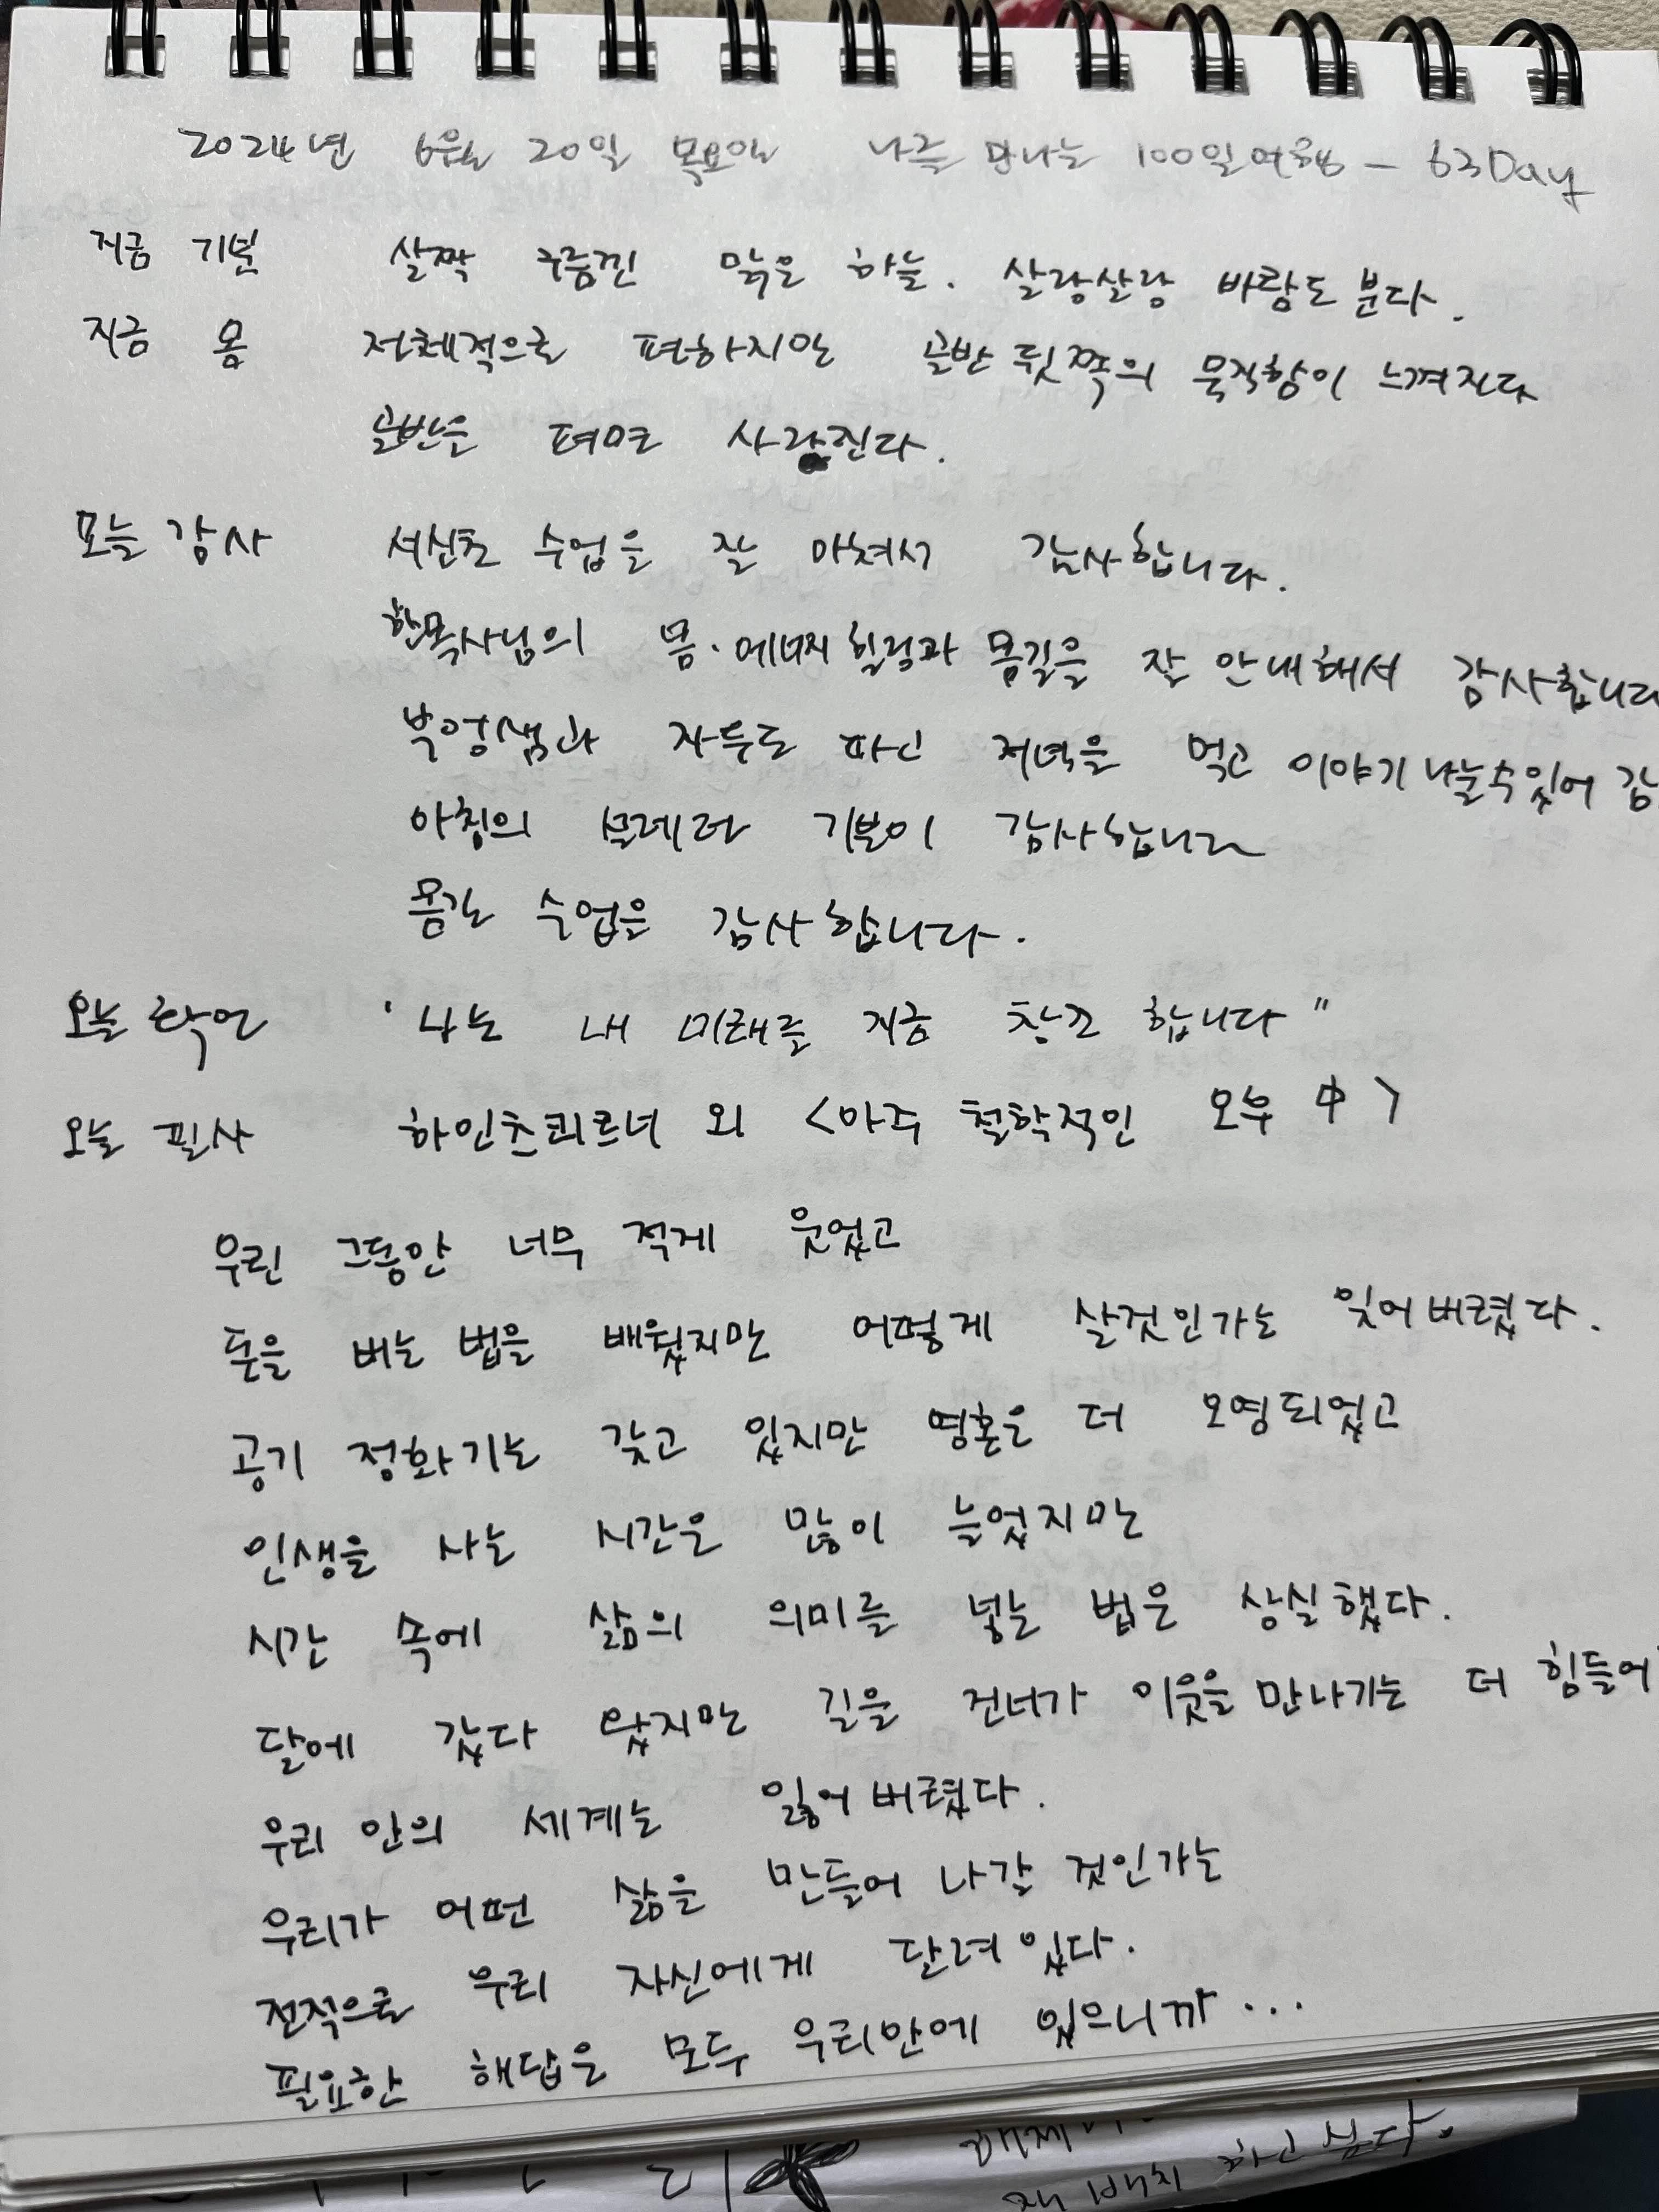 2024년 6월 20일 목요일 나를 만나는 100일 여행 - 63Day
지금 기분 살짝 구름낀 맑은 하늘. 살랑살랑 바람도 분다.
지금 몸 전체적으로 편하지만 골반 뒷쪽의 묵직함이 느껴진다
골반을 펴면 사라진다.
오늘 감사 서신초 수업을 잘 마쳐서 감사합니다.
한목사님의 몸·에너지 힐링과 몸길을 잘 안내해서 감사합니다
부엉샘과 자두도 따고 저녁을 먹고 이야기 나눌수있어 감
아침의 설레는 기분이 감사합니다
몸길 수업을 감사합니다.
오늘 확언 ' 나는 내 미래를 지금 창조 합니다 "
오늘 필사 하인츠쾨르너 외 <아주 철학적인 오후 中>
우린 그동안 너무 적게 웃었고
돈을 버는 법을 배웠지만 어떻게 살것인가는 잊어버렸다.
공기 정화기는 갖고 있지만 영혼은 더 오염되었고
인생을 사는 시간은 많이 늘었지만
시간 속에 삶의 의미를 넣는 법은 상실했다.
달에 갔다 왔지만 길을 건너가 이웃을 만나기는 더 힘들어
우리 안의 세계는 잃어버렸다.
우리가 어떤 삶을 만들어 나갈 것인가는
전적으로 우리 자신에게 달려있다.
필요한 해답은 모두 우리안에 있으니까...
재 배치 하고 싶다.